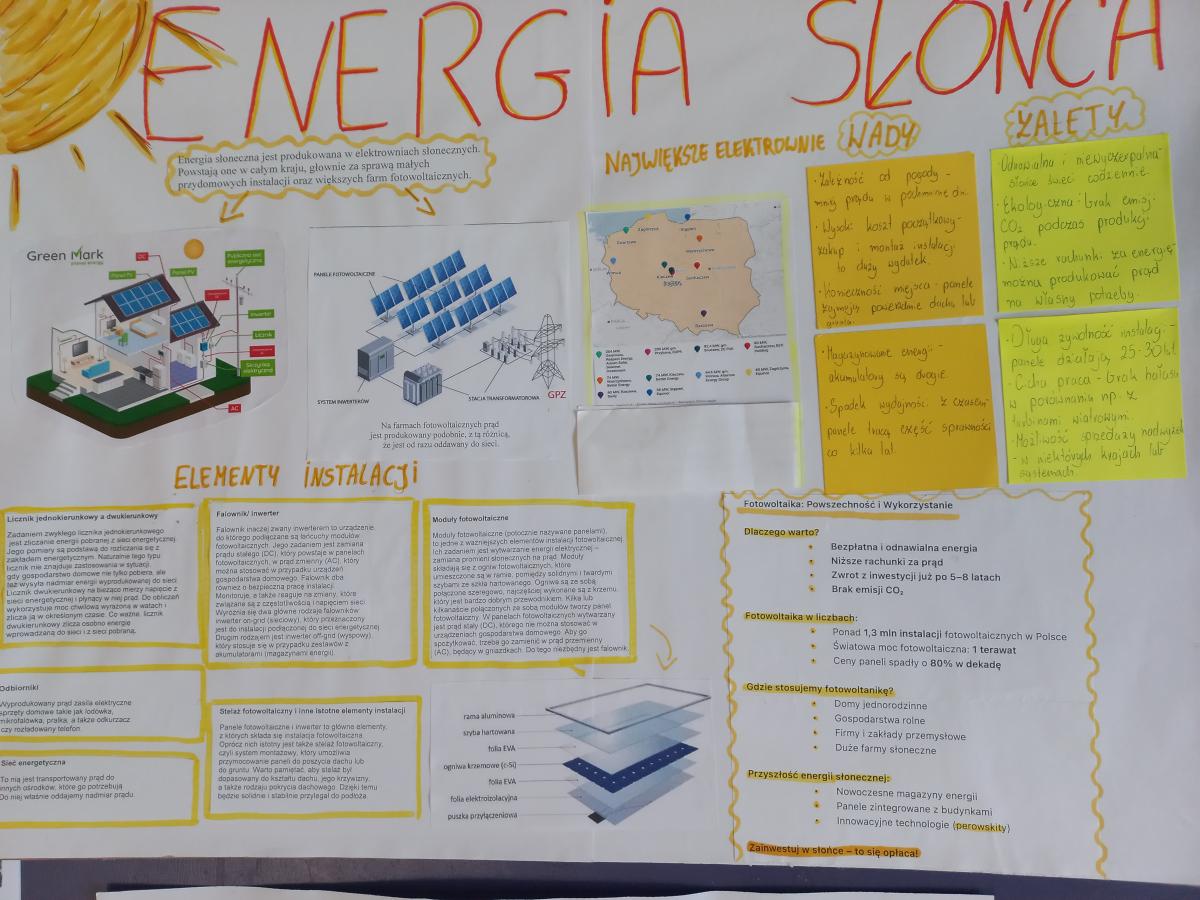 ENERGIA SŁOŃCA
Energia słoneczna jest produkowana w elektrowniach słonecznych.
Powstają one w całym kraju, głównie za sprawą małych
przydomowych instalacji oraz większych farm fotowoltaicznych.
Green Mark
DC
Panel PV
Panel PV
Publiczna sieć
energetyczna
Inwerter
Licznik
Skrzynka
elektryczna
AC
PANELE FOTOWOLTAICZNE
SYSTEM INWERTERÓW
STACJA TRANSFORMATOROWA
GPZ
Na farmach fotowoltaicznych prąd
jest produkowany podobnie, z tą różnicą,
że jest od razu oddawany do sieci.
NAJWIĘKSZE ELEKTROWNIE
WADY
· Zależność od pogody -
mniej prądu w pochmurne dni.
· Wysoki koszt początkowy -
zakup i montaż instalacji
to duży wydatek.
· Konieczność miejsca - panele
zajmują powierzchnię dachu lub
· Magazynowanie energii -
akumulatory są drogie.
· Spadek wydajności z czasem
panele tracą część sprawności
co kilka lat.
ZALETY
· Odnawialna i niewyczerpalna -
słońce świeci codziennie.
· Ekologiczna - brak emisji
CO₂ podczas produkcji
prądu.
· Niższe rachunki za energię
można produkować prąd
na własny potrzeby.
· Długa żywotność instalacji -
panele działają 25-30 lat.
- Cicha praca - brak hałasu
w porównaniu np. z
turbinami wiatrowym.
- Możliwość sprzedaży nadwyżek
- w niektórych krajach lub
systemach.
ELEMENTY INSTALACJI
Licznik jednokierunkowy a dwukierunkowy
Zadaniem zwykłego licznika jednokierunkowego
jest zliczanie energii pobranej z sieci energetycznej.
Jego pomiary są podstawą do rozliczania się z
zakładem energetycznym. Naturalnie tego typu
licznik nie znajduje zastosowania w sytuacji,
gdy gospodarstwo domowe nie tylko pobiera, ale
też wysyła nadmiar energii wyprodukowanej do sieci.
Licznik dwukierunkowy na bieżąco mierzy napięcie z
sieci energetycznej i płynący w niej prąd. Do obliczeń
wykorzystuje moc chwilową wyrażoną w watach i
zlicza ją w określonym czasie. Co ważne, licznik
dwukierunkowy zlicza osobno energię
wprowadzaną do sieci i z sieci pobraną.
Falownik/ inwerter
Falownik inaczej zwany inwerterem to urządzenie,
do którego podłączane są łańcuchy modułów
fotowoltaicznych. Jego zadaniem jest zamiana
prądu stałego (DC), który powstaje w panelach
fotowoltaicznych, w prąd zmienny (AC), który
można stosować w przypadku urządzeń
gospodarstwa domowego. Falownik dba
również o bezpieczną pracę instalacji.
Monitoruje, a także reaguje na zmiany, które
związane są z częstotliwością i napięciem sieci.
Wyróżnia się dwa główne rodzaje falowników:
inwerter on-grid (sieciowy), który przeznaczony
jest do instalacji podłączonej do sieci energetycznej.
Drugim rodzajem jest inwerter off-grid (wyspowy),
który stosuje się w przypadku zestawów z
akumulatorami (magazynami energii).
Moduły fotowoltaiczne
Moduły fotowoltaiczne (potocznie nazywane panelami),
to jedne z ważniejszych elementów instalacji fotowoltaicznej.
Ich zadaniem jest wytwarzanie energii elektrycznej –
zamiana promieni słonecznych na prąd. Moduły
składają się z ogniw fotowoltaicznych, które
umieszczone są w ramie, pomiędzy solidnymi i twardymi
szybami ze szkła hartowanego. Ogniwa są ze sobą
połączone szeregowo, najczęściej wykonane są z krzemu,
który jest bardzo dobrym przewodnikiem. Kilka lub
kilkanaście połączonych ze sobą modułów tworzy panel
fotowoltaiczny. W panelach fotowoltaicznych wytwarzany
jest prąd stały (DC), którego nie można stosować w
urządzeniach gospodarstwa domowego. Aby go
spożytkować, trzeba go zamienić w prąd przemienny
(AC), będący w gniazdkach. Do tego niezbędny jest falownik.
Odbiorniki
Wyprodukowany prąd zasila elektryczne
sprzęty domowe takie jak lodówka,
mikrofalówka, pralka, a także odkurzacz
czy rozładowany telefon.
Sieć energetyczna
To nią jest transportowany prąd do
innych ośrodków, które go potrzebują.
Do niej właśnie oddajemy nadmiar prądu.
Stelaż fotowoltaiczny i inne istotne elementy instalacji
Panele fotowoltaiczne i inwerter to główne elementy,
z których składa się instalacja fotowoltaiczna.
Oprócz nich istotny jest także stelaż fotowoltaiczny,
czyli system montażowy, który umożliwia
przymocowanie paneli do poszycia dachu lub
do gruntu. Warto pamiętać, aby stelaż był
dopasowany do kształtu dachu, jego krzywizny,
a także rodzaju pokrycia dachowego. Dzięki temu
będzie solidnie i stabilnie przylegał do podłoża.
rama aluminowa
szyba hartowana
folia EVA
ogniwa krzemowe (c-Si)
folia EVA
folia elektroizolacyjna
puszka przyłączeniowa
Fotowoltaika: Powszechność i Wykorzystanie
Dlaczego warto?
Bezpłatna i odnawialna energia
Niższe rachunki za prąd
Zwrot z inwestycji już po 5–8 latach
Brak emisji CO₂
Fotowoltaika w liczbach:
Ponad 1,3 mln instalacji fotowoltaicznych w Polsce
Światowa moc fotowoltaiczna: 1 terawat
Ceny paneli spadły o 80% w dekadę
Gdzie stosujemy fotowoltanikę?
Domy jednorodzinne
Gospodarstwa rolne
Firmy i zakłady przemysłowe
Duże farmy słoneczne
Przyszłość energii słonecznej:
Nowoczesne magazyny energii
Panele zintegrowane z budynkami
Innowacyjne technologie (perowskity)
Zainwestuj w słońce – to się opłaca!